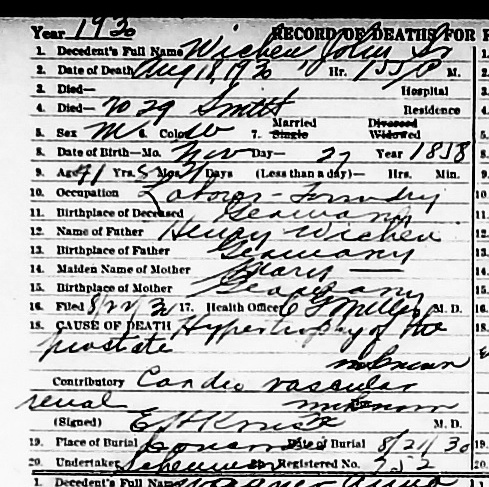 Year 1930 RECORD OF DEATHS FOR
1. Decedent's Full Name Wichen John Sr
2. Date of Death Aug 18, 1930 Hr. 155 P M.
3. Died— Hospital
4. Died— 2029 Smith Residence
5. Sex M 6. Color W 7. Married Single Divorced Widowed
8. Date of Birth—Mo. Nov Day— 27 Year 1858
9. Age 71 Yrs. 8 Mos. Days (Less than a day)— Hrs. Min.
10. Occupation Laborer - Foundry
11. Birthplace of Deceased Germany
12. Name of Father Henry Wichen
13. Birthplace of Father Germany
14. Maiden Name of Mother Mary —
15. Birthplace of Mother Germany
16. Filed 8/22/30 17. Health Officer Miller M. D.
18. CAUSE OF DEATH Hypertrophy of the
prostate
unknown
Contributory Cardio vascular
renal unknown
(Signed) M. D.
19. Place of Burial Concordia Date of Burial 8/21/30
20. Undertaker Registered No. 752
1. Decedent's Full Name Wagner Anna